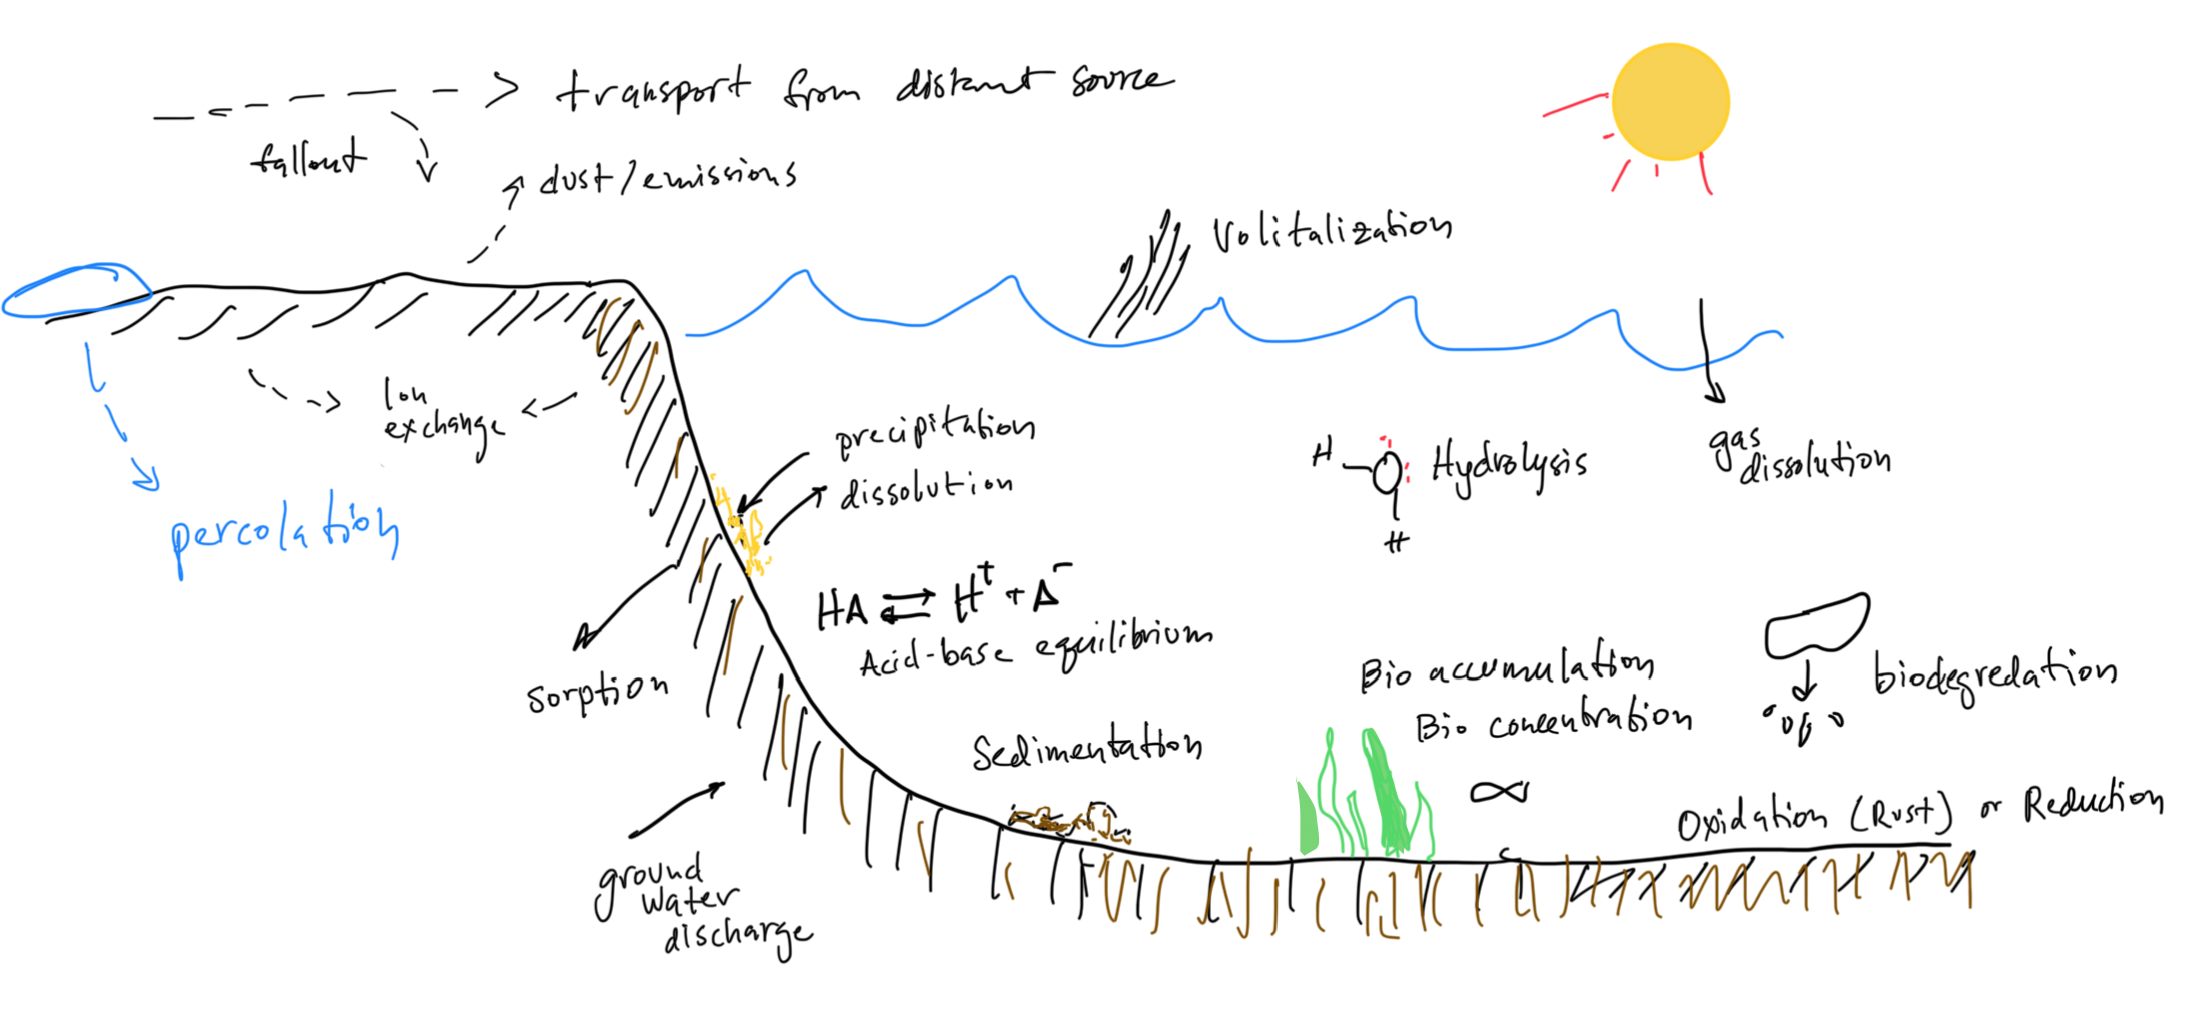 transport from distant source
fallout
dust/emissions
Volitalization
Ion
exchange
precipitation
dissolution
percolation
H
O
H
Hydrolysis
gas
dissolution
HA ⇌ H⁺ + A⁻
Acid-base equilibrium
sorption
Bio accumulation
Bio concentration
biodegredation
Sedimentation
Oxidation (Rust) or Reduction
ground
water
discharge